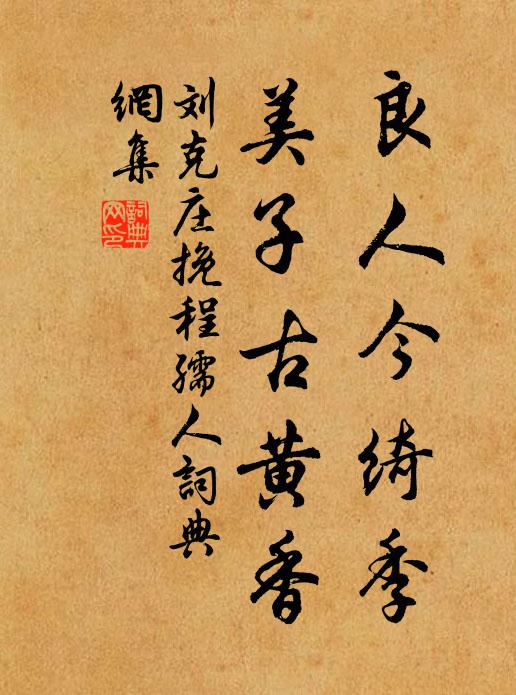 良人今綺季
美子古黄香
刘克庄挽程孺人詞典
網集
詞典
网印